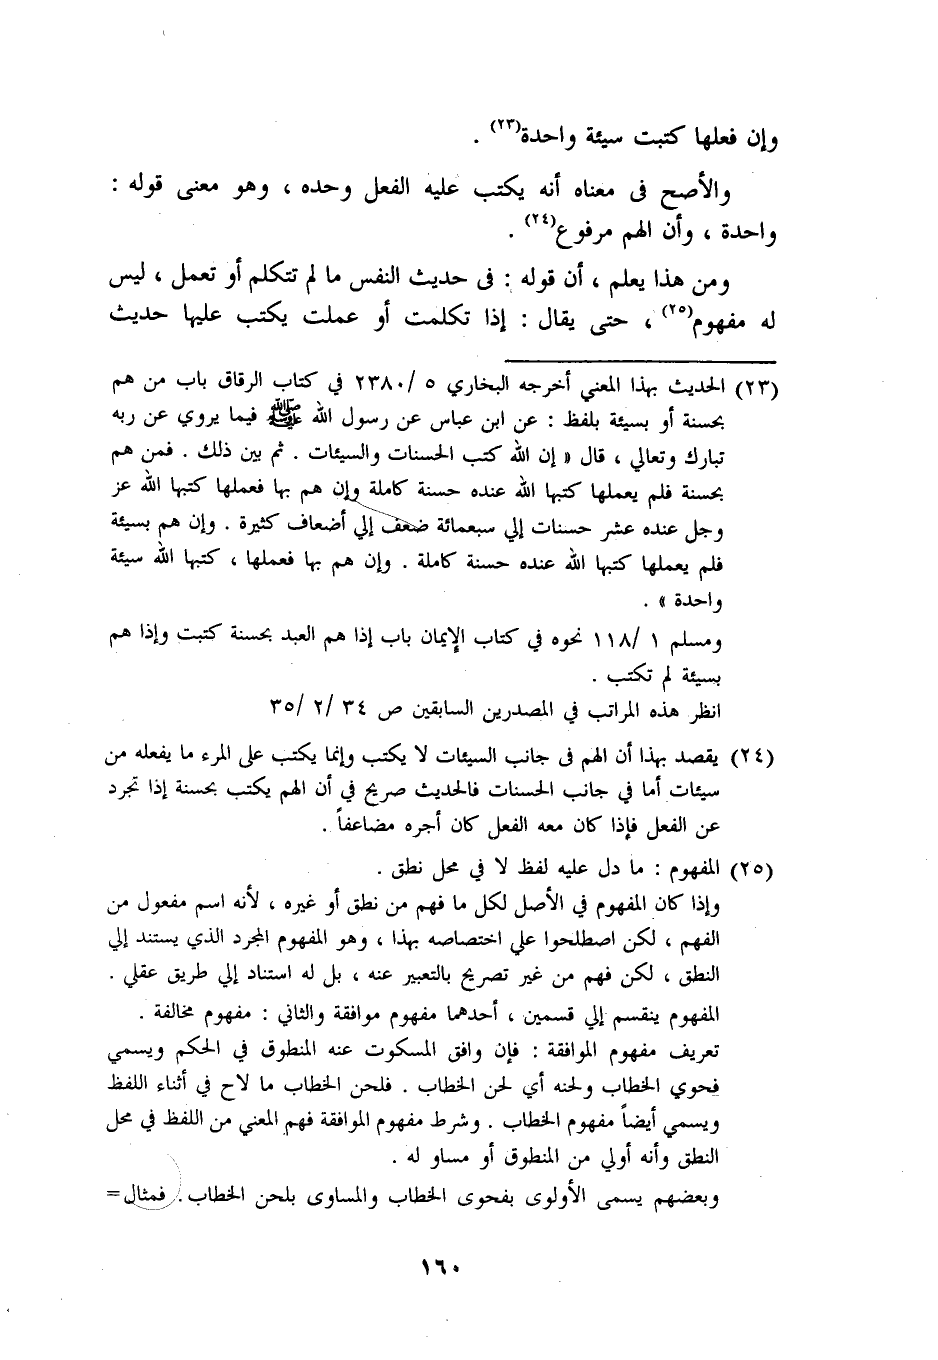 وإن فعلها كتبت سيئة واحدة(٢٣) .
والأصح فى معناه أنه يكتب عليه الفعل وحده ، وهو معنى قوله :
واحدة ، وأن الهم مرفوع(٢٤) .
ومن هذا يعلم ، أن قوله : فى حديث النفس ما لم تتكلم أو تعمل ، ليس
له مفهوم(٢٥) ، حتى يقال : إذا تكلمت أو عملت يكتب عليها حديث
(٢٣) الحديث بهذا المعني أخرجه البخاري ٥ /٢٣٨٠ في كتاب الرقاق باب من هم
بحسنة أو بسيئة بلفظ : عن ابن عباس عن رسول الله ﷺ فيما يروي عن ربه
تبارك وتعالي ، قال « إن الله كتب الحسنات والسيئات . ثم بين ذلك . فمن هم
بحسنة فلم يعملها كتبها الله عنده حسنة كاملة وإن هم بها فعملها كتبها الله عز
وجل عنده عشر حسنات إلي سبعمائة ضعف إلي أضعاف كثيرة . وإن هم بسيئة
فلم يعملها كتبها الله عنده حسنة كاملة . وإن هم بها فعملها ، كتبها الله سيئة
واحدة » .
ومسلم ١ /١١٨ نحوه في كتاب الإيمان باب إذا هم العبد بحسنة كتبت وإذا هم
بسيئة لم تكتب .
انظر هذه المراتب في المصدرين السابقين ص ٣٤ /٢ /٣٥
(٢٤) يقصد بهذا أن الهم فى جانب السيئات لا يكتب وإنما يكتب على المرء ما يفعله من
سيئات أما في جانب الحسنات فالحديث صريح في أن الهم يكتب بحسنة إذا تجرد
عن الفعل فإذا كان معه الفعل كان أجره مضاعفاً .
(٢٥) المفهوم : ما دل عليه لفظ لا في محل نطق .
وإذا كان المفهوم في الأصل لكل ما فهم من نطق أو غيره ، لأنه اسم مفعول من
الفهم ، لكن اصطلحوا علي اختصاصه بهذا ، وهو المفهوم المجرد الذي يستند إلي
النطق ، لكن فهم من غير تصريح بالتعبير عنه ، بل له استناد إلي طريق عقلي .
المفهوم ينقسم إلي قسمين ، أحدهما مفهوم موافقة والثاني : مفهوم مخالفة .
تعريف مفهوم الموافقة : فإن وافق المسكوت عنه المنطوق في الحكم ويسمي
فحوي الخطاب ولحنه أي لحن الخطاب . فلحن الخطاب ما لاح في أثناء اللفظ
ويسمي أيضاً مفهوم الخطاب . وشرط مفهوم الموافقة فهم المعني من اللفظ في محل
النطق وأنه أولي من المنطوق أو مساو له .
وبعضهم يسمى الأولوى بفحوى الخطاب والمساوى بلحن الخطاب . فمثال=
١٦٠